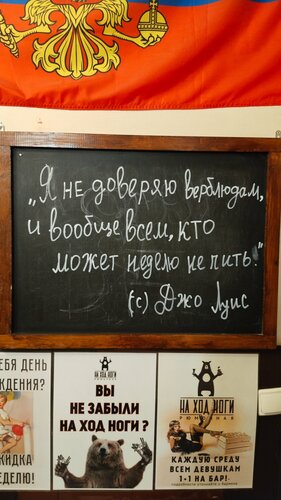 „Я не доверяю верблюдам,
и вообще всем, кто
может неделю не пить."
(с) Джо Луис
ЕБЯ ДЕНЬ
ЖДЕНИЯ?
КИДКА
ЕДЕЛЮ!
НА ХОД НОГИ
ВЫ
НЕ ЗАБЫЛИ
НА ХОД НОГИ?
НА ХОД НОГИ
РЮМОЧНАЯ
КАЖДУЮ СРЕДУ
ВСЕМ ДЕВУШКАМ
1+1 НА БАР!